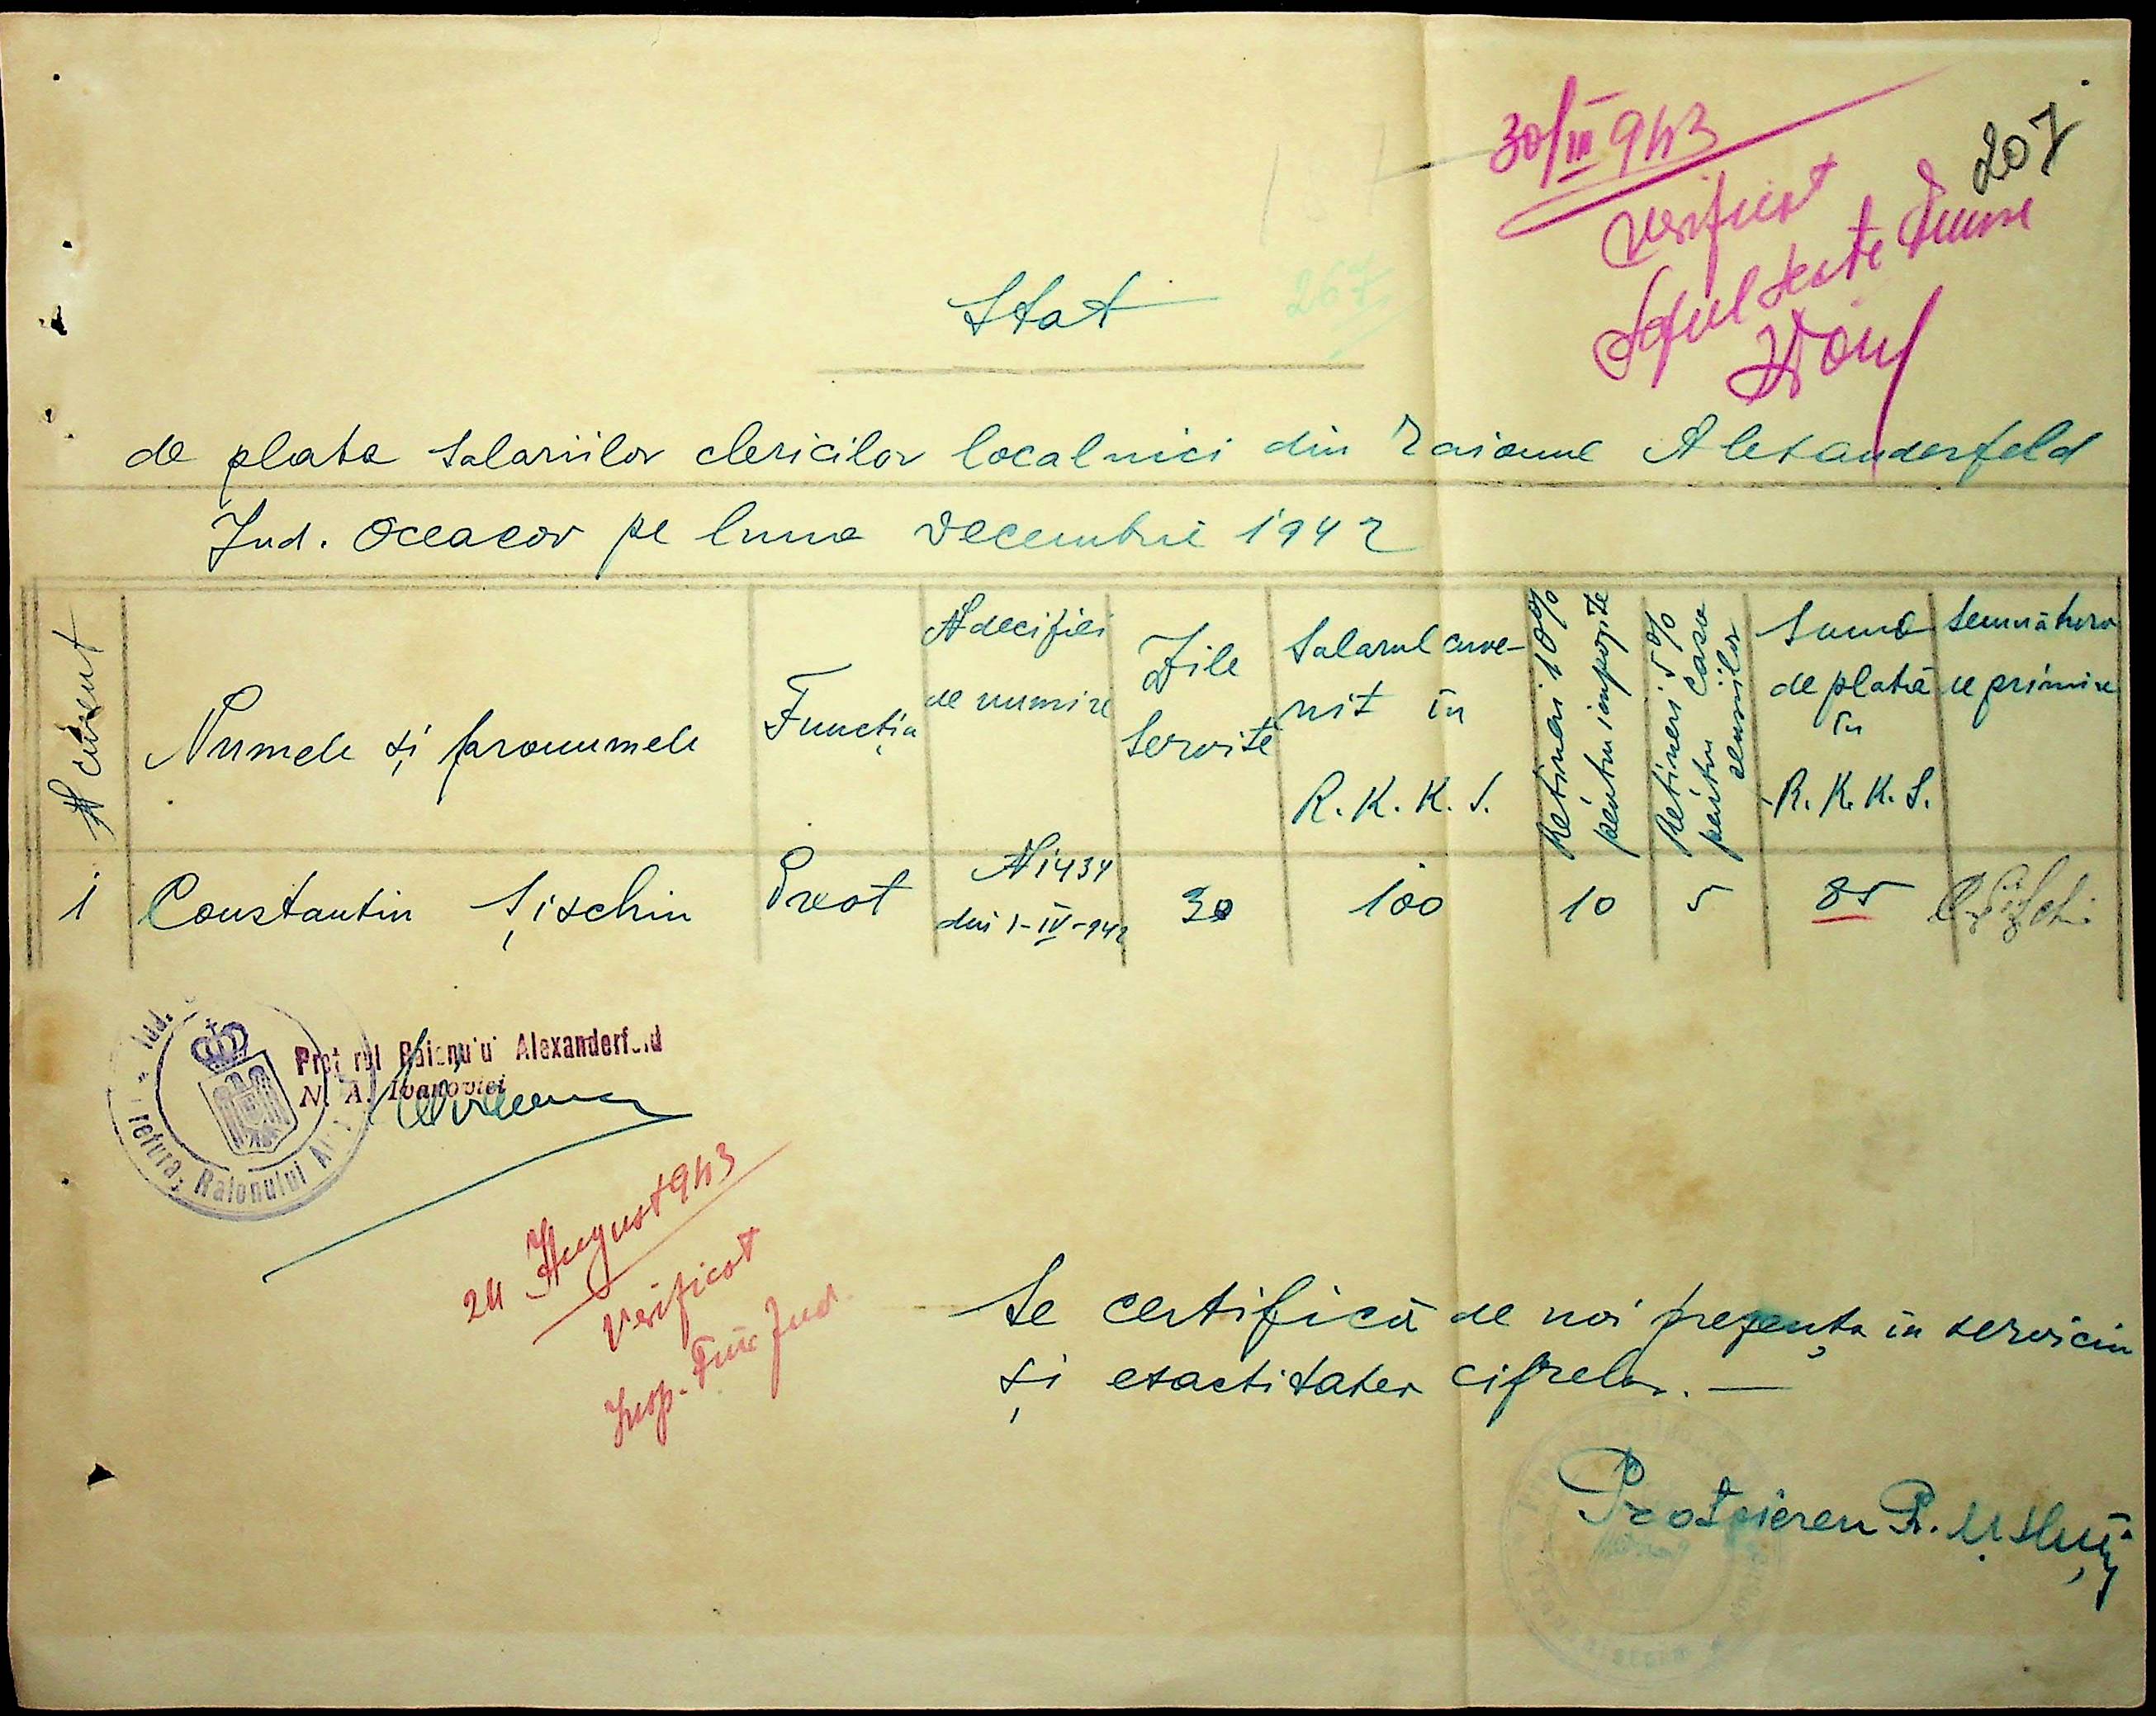 30/III 943
207
Verificat
Șeful
267
Stat
de plata salariilor clericilor localnici din raionul Alexanderfeld
Jud. Oceacov pe luna Decembrie 1942
№ curent
Numele și pronumele
Funcția
№ deciziei
de numire
Zile
servite
Salarul cuve-
nit în
R.K.K.S.
Rețineri 10%
pentru impozite
Rețineri 5%
pentru Casa
pensiilor
Suma
de plată
în
R.K.K.S.
Semnătura
de primire
1 Constantin Șischin Preot № 1434 30 100 10 5 85
din 1-IV-942
Jud.
Pret rul Raionului Alexanderfeld
N. A. Ivanovici
retura, Raionului Al
24 August 943
Verificat
Insp. Fin. Jud.
Se certifică de noi prezența în serviciu
și exactitatea cifrelor. —
Protoiereu